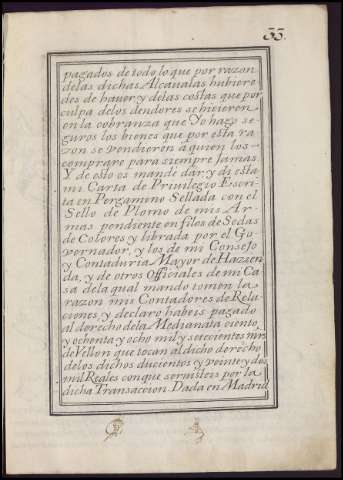 33.
pagados de todo lo que por razon
delas dichas Alcaualas hubiere
des de hauer y delas costas que por
culpa delos deudores se hicieren
en la cobranza que Yo hago se
guros los bienes que por esta ra
zon se vendieren a quien los
comprare para siempre Jamas.
Y de esto os mande dar y di esta
mi Carta de Priuilegio Escri
ta en Pergamino Sellada con el
Sello de Plomo de mis Ar
mas pendiente en filos de Sedas
de Colores y librada por el Go
vernador, y los de mi Consejo
y Contaduria Mayor de Hazzien
da, y de otros Officiales de mi Ca
sa dela qual mando tomen la
razon mis Contadores de Rela
ciones y declaro habeis pagado
al derecho dela Medianata ciento,
y ochenta y ocho mil y setecientos mrs
de Vellon que tocan al dicho derecho
delos dichos ducientos y veinte y dos
mil Reales con que seruisteis por la
dicha Transaccion Dada en Madrid